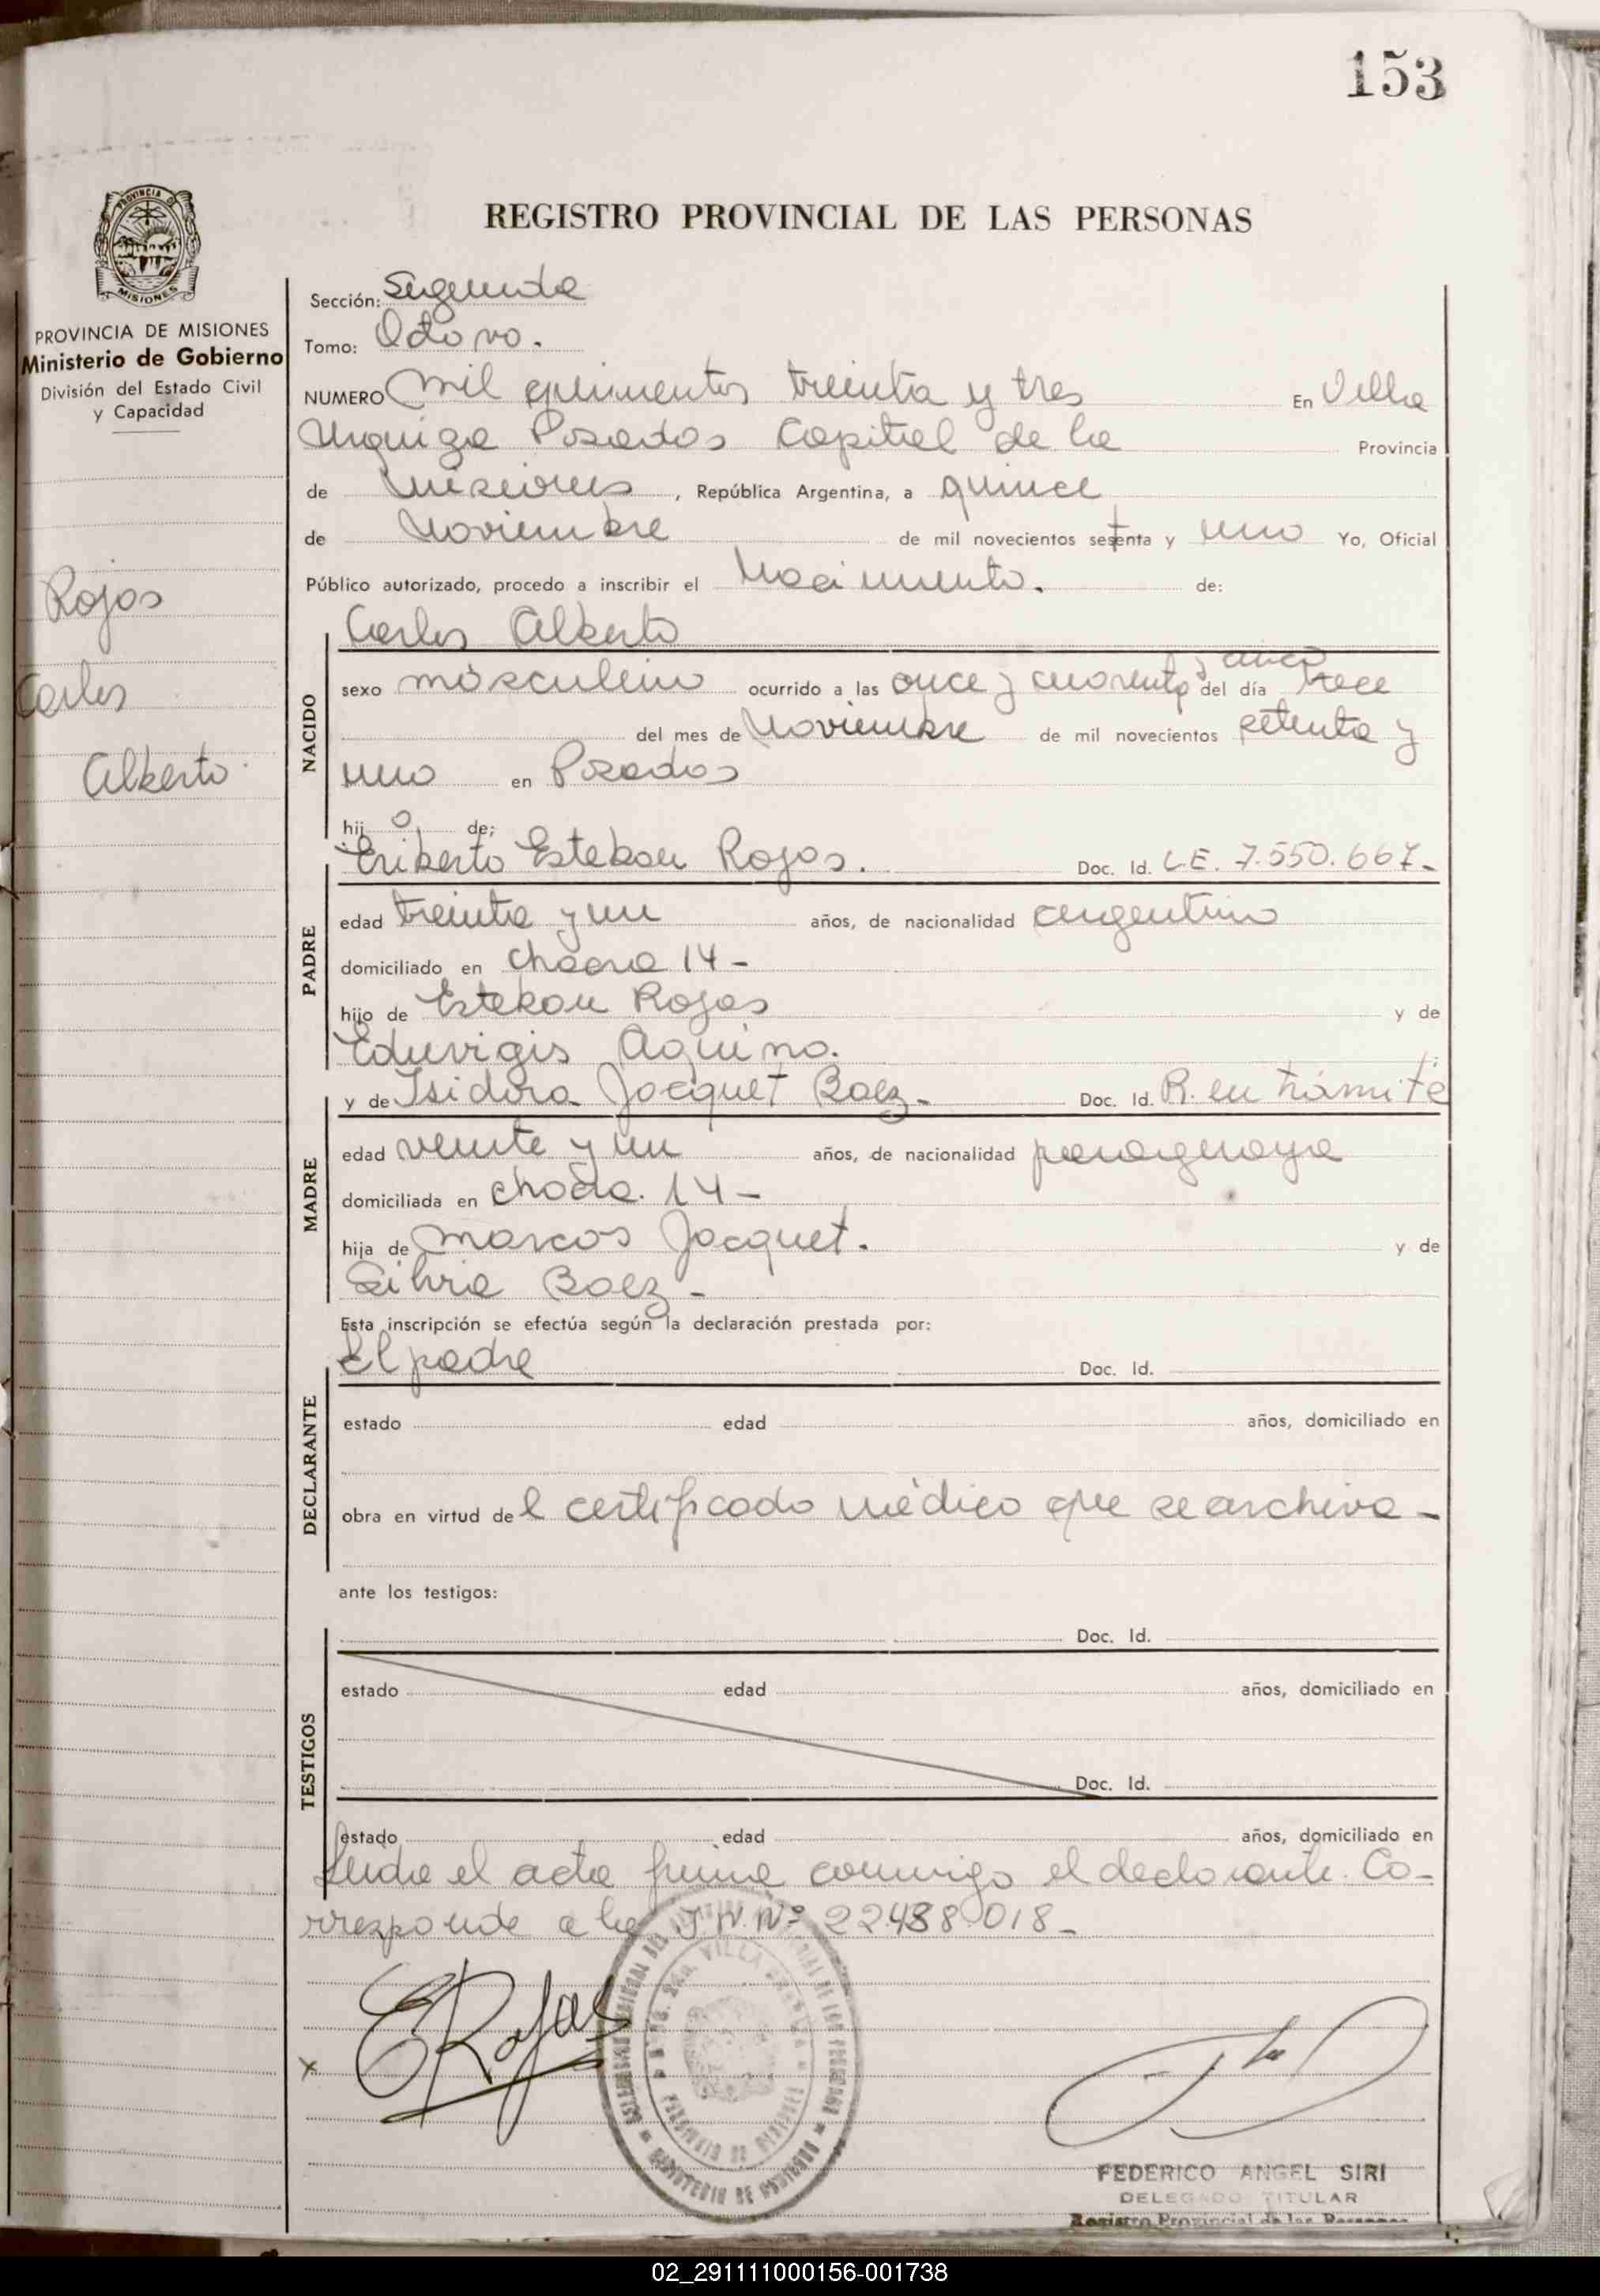 153
PROVINCIA DE
MISIONES
PROVINCIA DE MISIONES
Ministerio de Gobierno
División del Estado Civil
y Capacidad
Rojas
Carlos
Alberto
REGISTRO PROVINCIAL DE LAS PERSONAS
Sección: Segunda
Tomo: Octavo.
NUMERO Mil quinientos treinta y tres En Villa
Urquiza Posadas Capital de la Provincia
de Misiones, República Argentina, a quince
de Noviembre de mil novecientos setenta y uno Yo, Oficial
Público autorizado, procedo a inscribir el Nacimiento. de:
NACIDO
Carlos Alberto
sexo masculino ocurrido a las once y cuarenta y cinco del día trece
del mes de Noviembre de mil novecientos setenta y
uno en Posadas
hijo de;
PADRE
Eriberto Esteban Rojas. Doc. Id. L.E. 7.550.667-
edad treinta y un años, de nacionalidad argentino
domiciliado en chacra 14-
hijo de Esteban Rojas y de
Eduvigis Aquino.
MADRE
y de Isidora Jacquet Baez- Doc. Id. R. en trámite
edad veinte y un años, de nacionalidad paraguaya
domiciliada en chacra. 14-
hija de Marcos Jacquet. y de
Silvia Baez-
Esta inscripción se efectúa según la declaración prestada por:
DECLARANTE
El padre Doc. Id.
estado edad años, domiciliado en
obra en virtud del certificado médico que se archiva-
ante los testigos:
TESTIGOS
Doc. Id.
estado edad años, domiciliado en
Doc. Id.
estado edad años, domiciliado en
Leida el acta firma conmigo el declarante. Co-
rresponde a la I.N. Nº 22.488.018-
ERojas
VILLA URQUIZA
PROVINCIA DE MISIONES
MINISTERIO DE GOBIERNO
FEDERICO ANGEL SIRI
DELEGADO TITULAR
Registro Provincial de las Personas
02_291111000156-001738